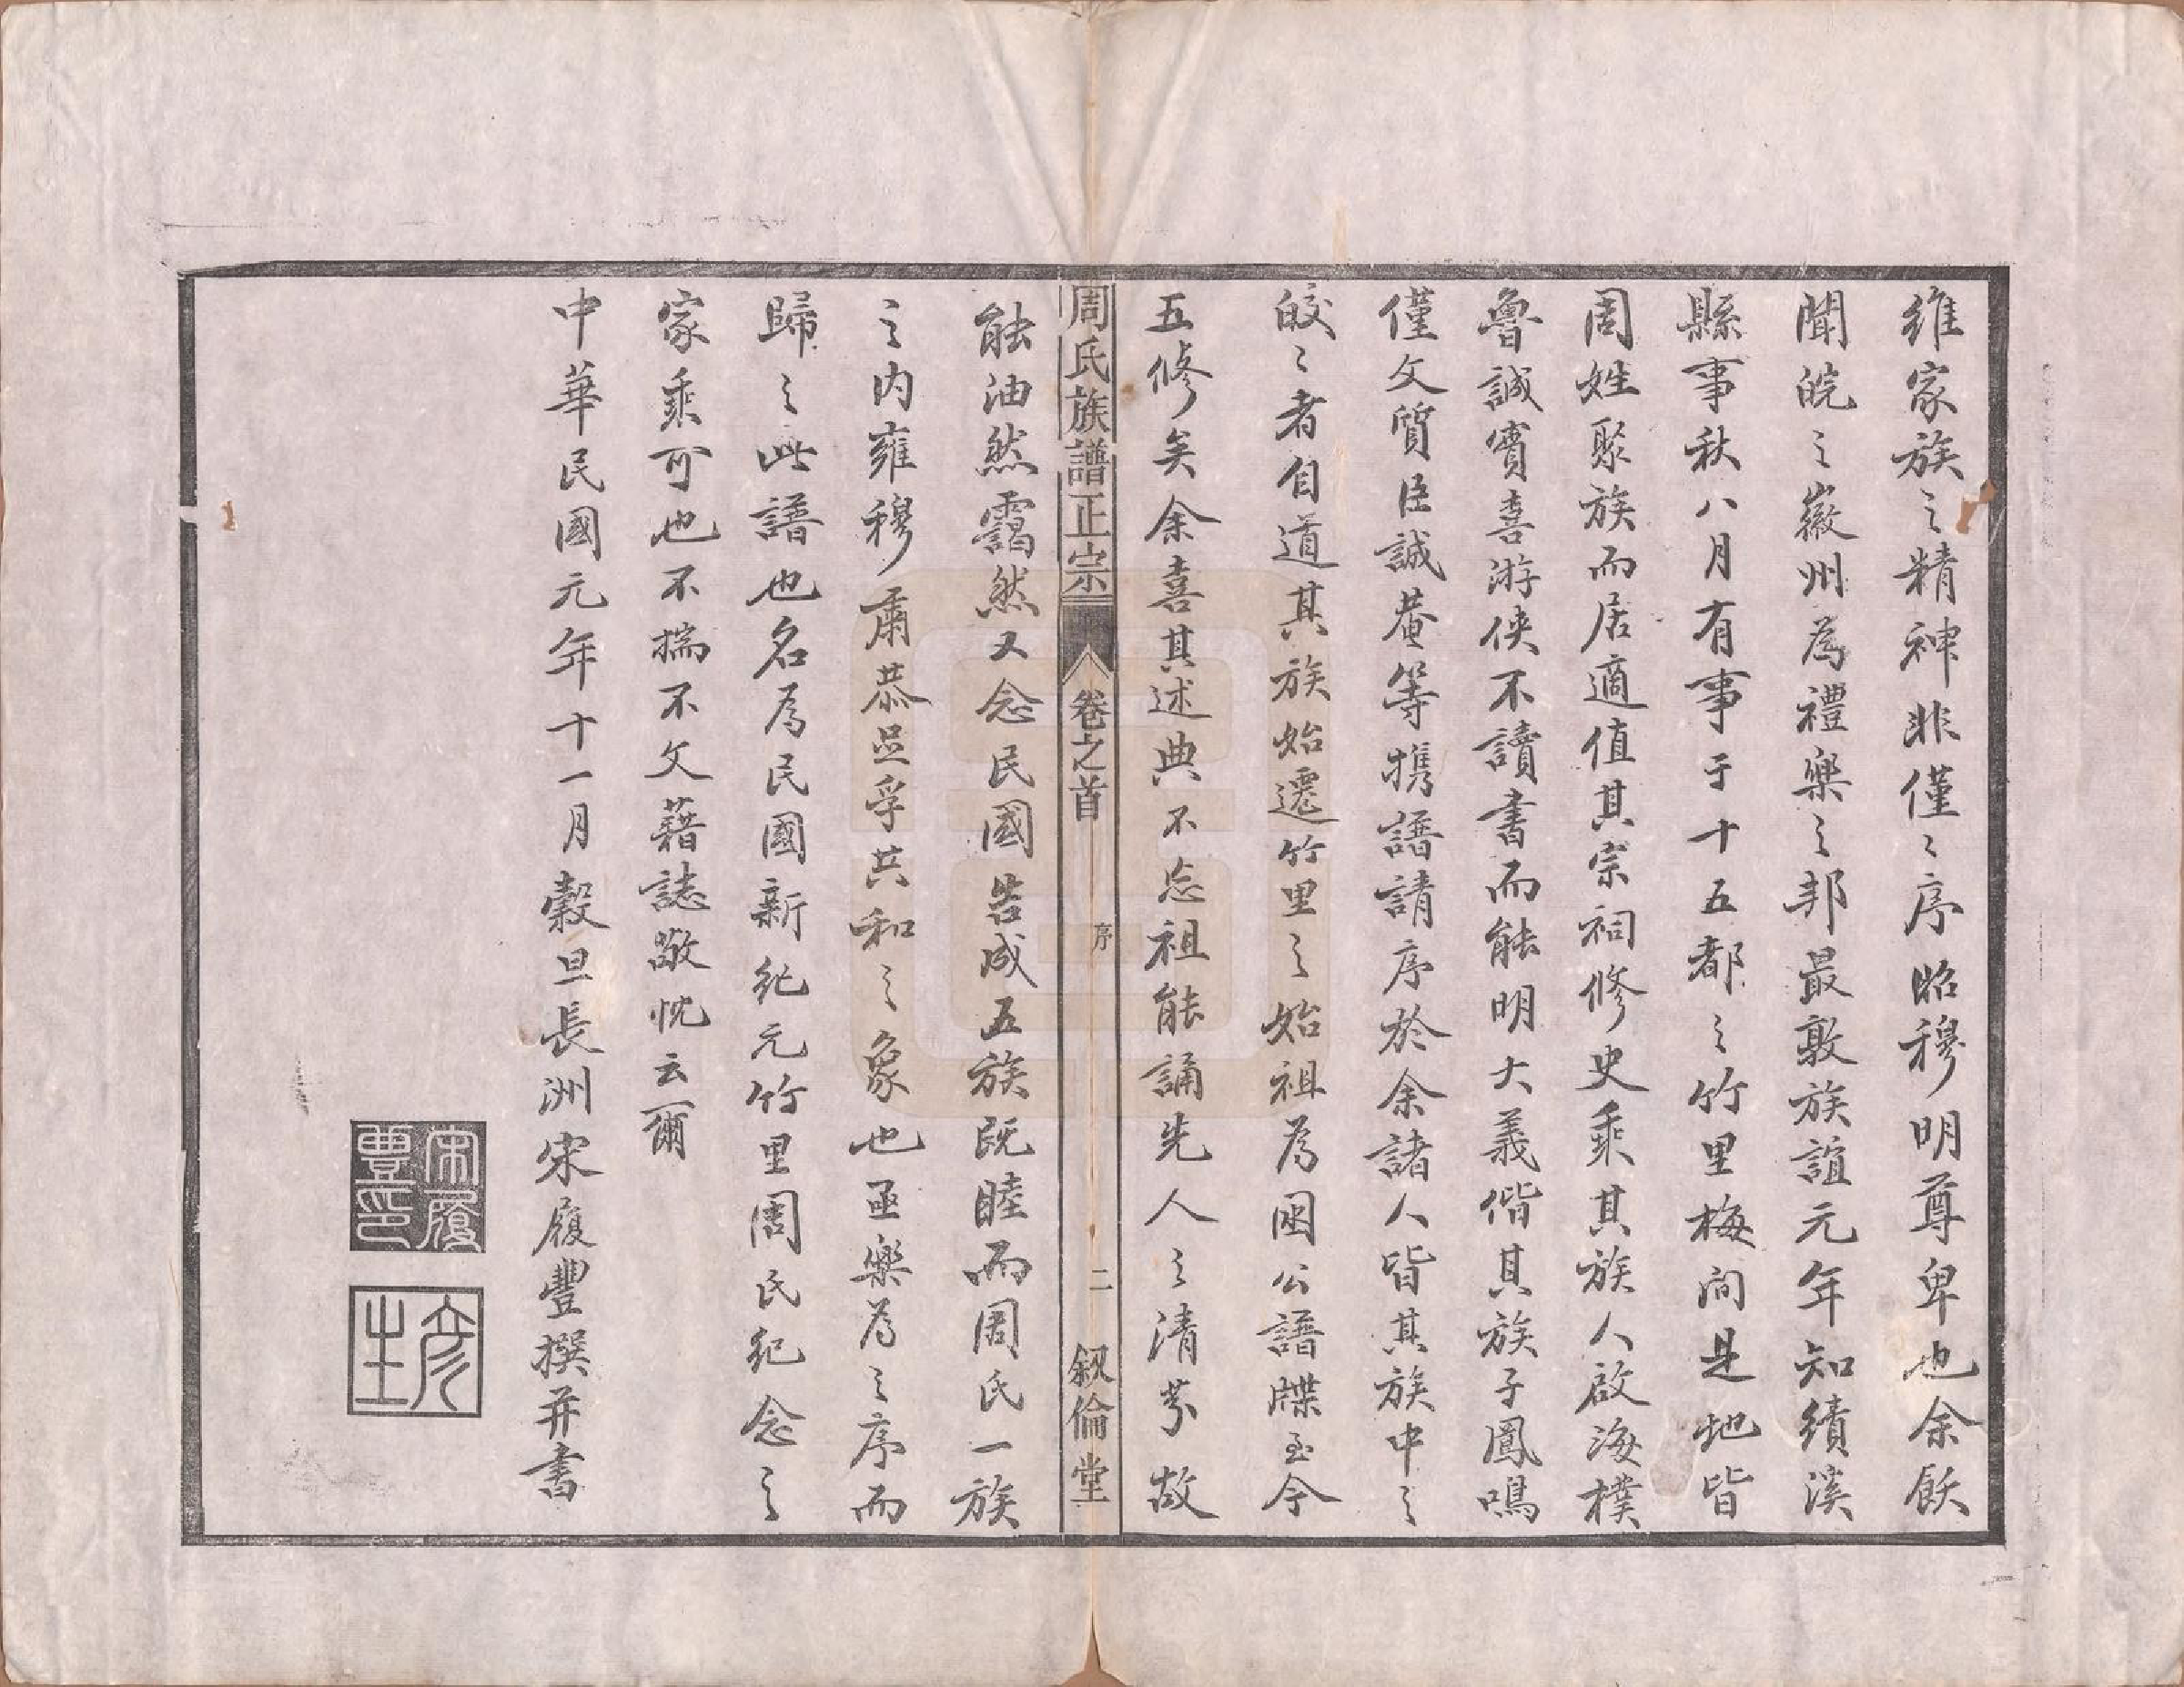 維家族之精神非僅〻序昭穆明尊卑也余飫
聞皖之徽州為禮樂之邦最敦族誼元年知績溪
縣事秋八月有事于十五都之竹里梅向是地皆
周姓聚族而居適值其宗祠修史乘其族人啟海樸
魯誠實喜游俠不讀書而能明大義偕其族子鳳鳴
僅文質臣誠菴等攜譜請序於余諸人皆其族中之
皎〻者自道其族始遷竹里之始祖為囦公譜牒至今
五修矣余喜其述典不忘祖能誦先人之清芬故
周氏族譜正宗 卷之首 序 二 叙倫堂
能油然靄然又念民國告成五族既睦而周氏一族
之內雍穆肅恭足孚共和之象也亟樂為之序而
歸之此譜也名為民國新紀元竹里周氏紀念之
家乘可也不揣不文藉誌敬忱云爾
中華民國元年十一月穀旦長洲宋履豐撰并書
宋履豐印
彥生